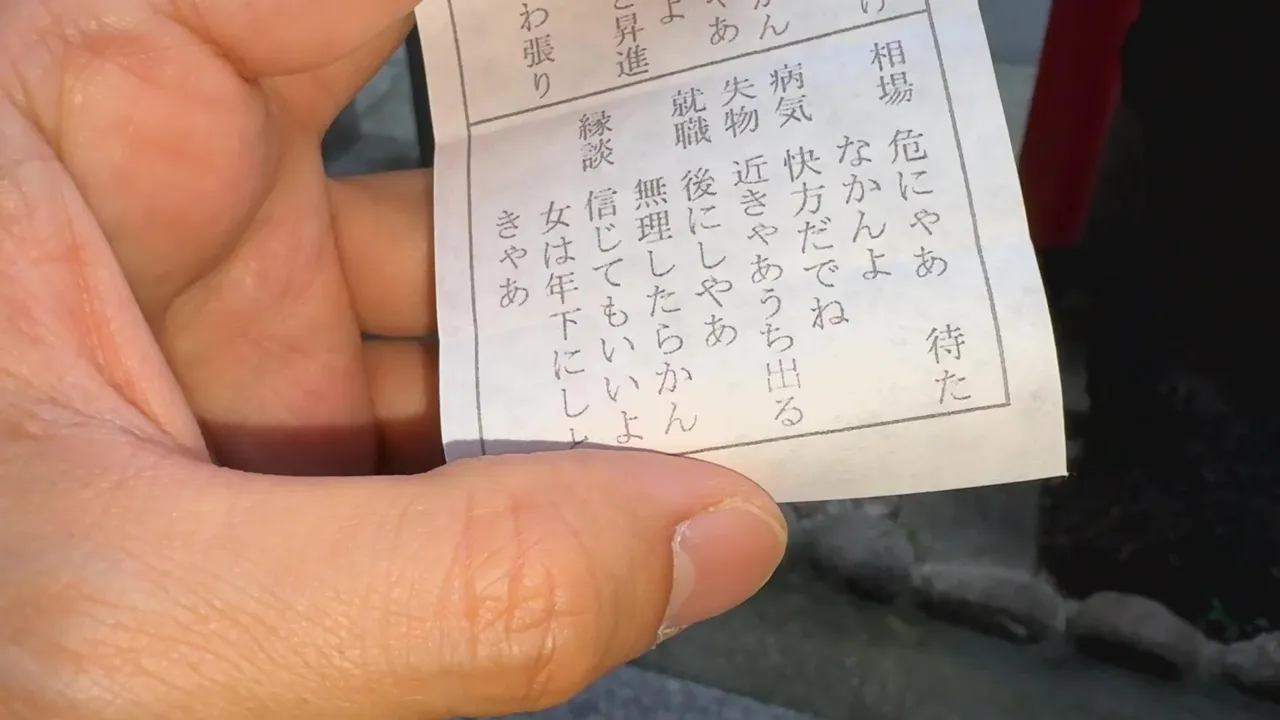 かん
ゃあ
よ
と昇進
わ張り
相場 危にゃあ 待た
なかんよ
病気 快方だでね
失物 近きゃあうち出る
就職 後にしやあ
無理したらかん
縁談 信じてもいいよ
女は年下にし
きゃあ